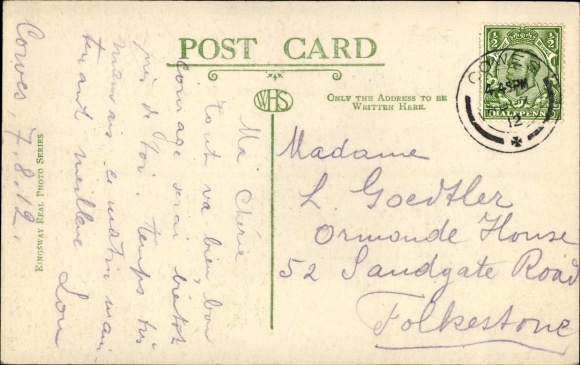 POST CARD
WHS
ONLY THE ADDRESS TO BE
WRITTEN HERE.
KINGSWAY REAL PHOTO SERIES
Cowes, 7.8.12.
Ma Chérie
Tout va bien, bon
Courage serai bientot
près de toi. temps très
mauvais ce matin main
tenant meilleur
Lou
Madame
L. Goedtler
Ormonde House
52 Sandgate Road
Folkestone
COWES
4.45PM
12
HALFPENNY